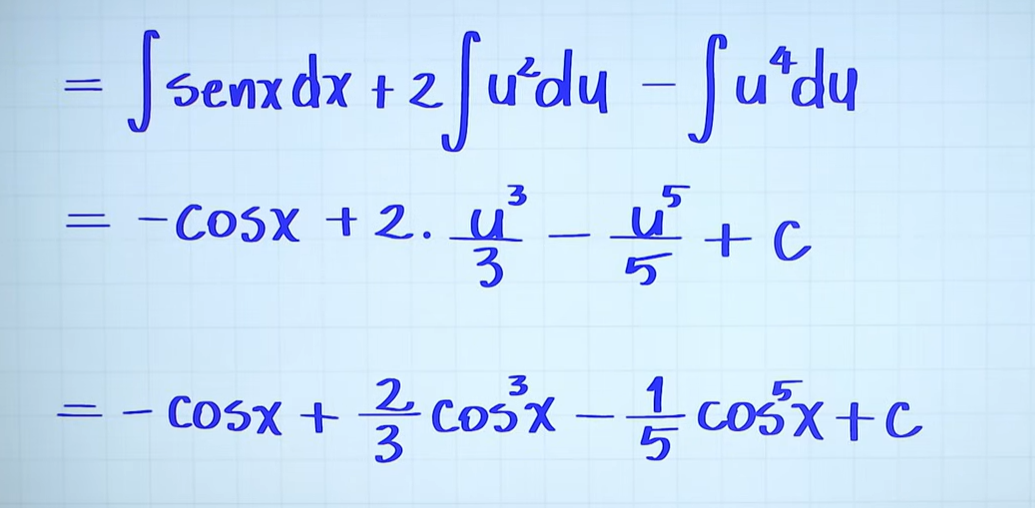 = ∫senxdx + 2∫u²du − ∫u⁴du
= -cosx + 2. u³/3 − u⁵/5 + c
= - cosx + 2/3 cos³x − 1/5 cos⁵x + c